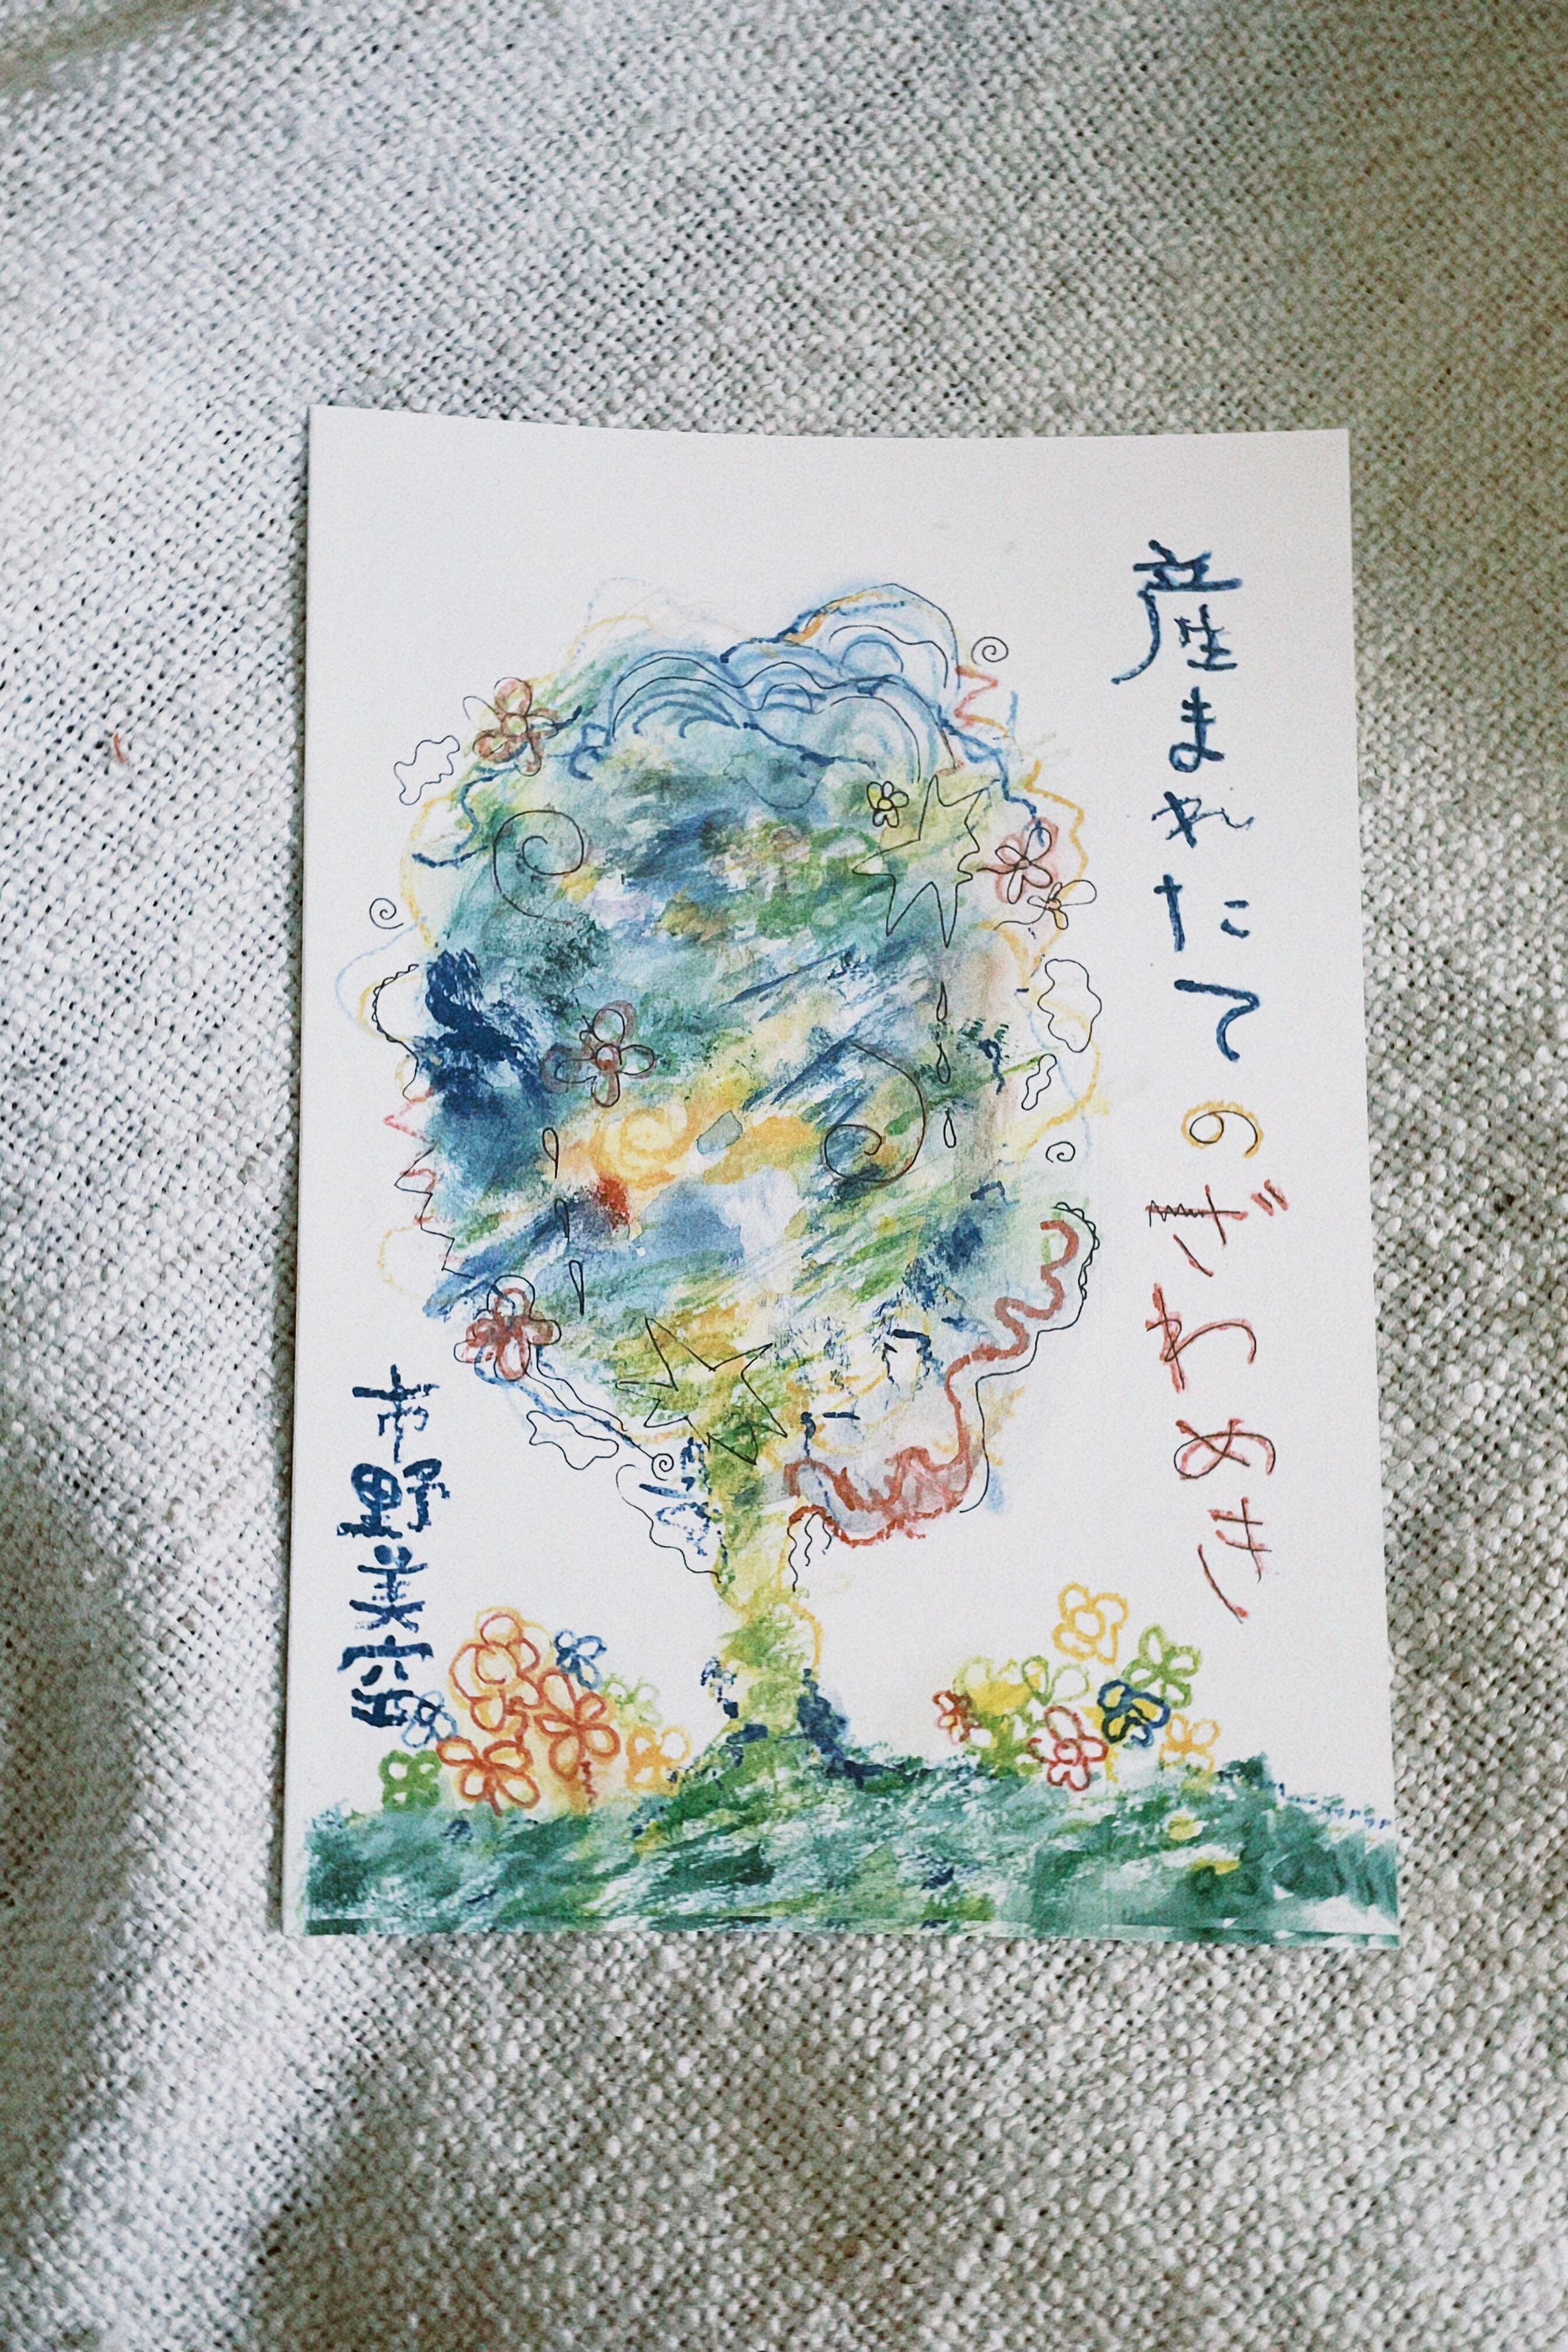 産まれたてのざわめき
市野美